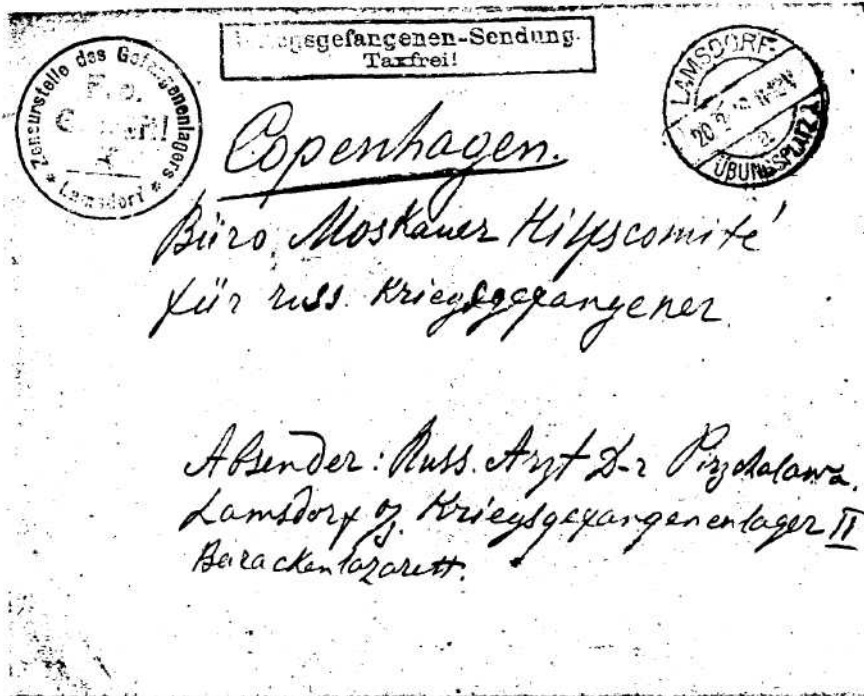 Zensurstelle des Gefangenenlagers
F. a.
* Lamsdorf *
-Sendung.
Taxfrei!
LAMSDORF
20.2.
a
ÜBUNGSPLATZ
Copenhagen.
Büro, Moskauer Hilfscomité
für russ. Kriegsgefangener
Absender: Russ. Arzt D-r
Lamsdorf Kriegsgefangenenlager II
Barackenlazarett.